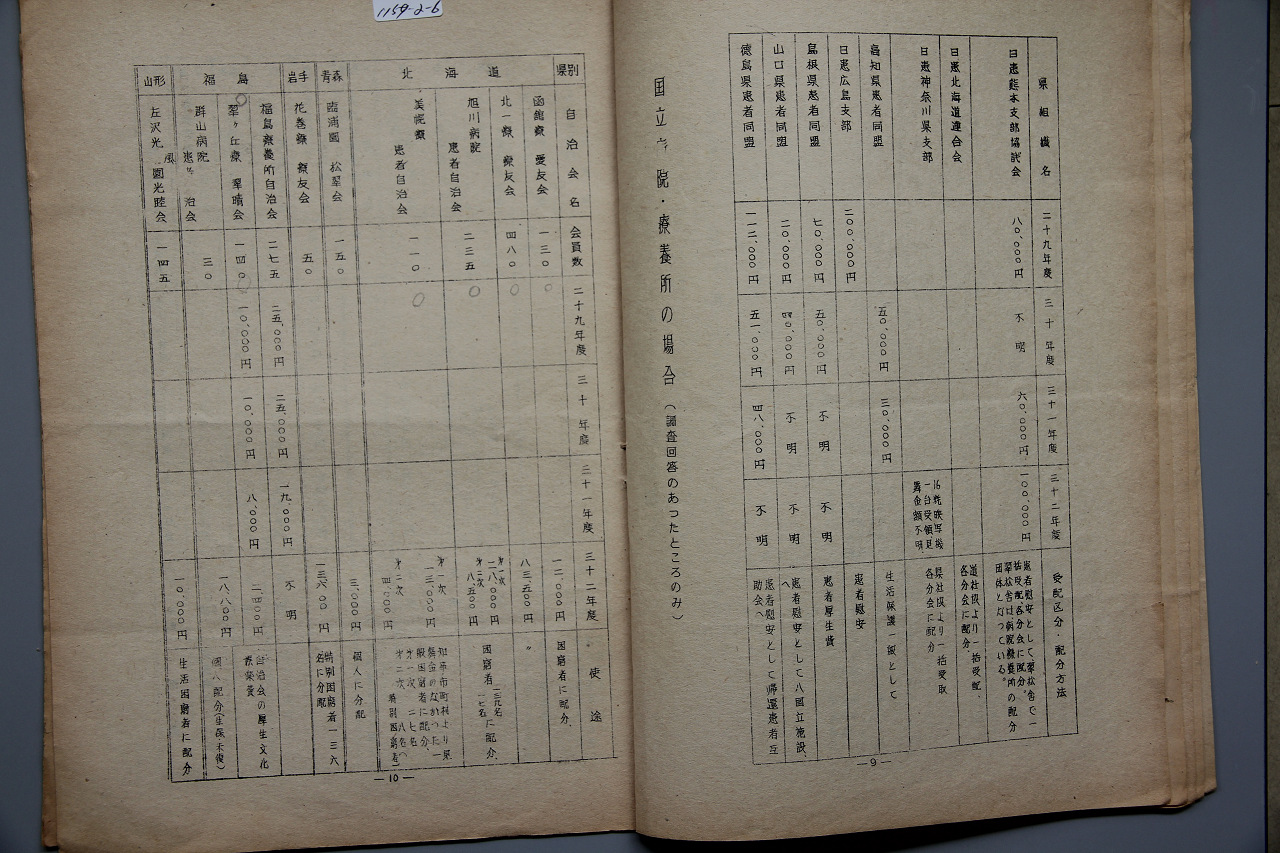 1159-2-6
県組織名
二十九年度
三十年度
三十一年度
三十二年度
受配区分・配分方法
日患熊本支部協議会
八〇,〇〇〇円
不明
六〇,〇〇〇円
一〇〇,〇〇〇円
患者慰安として翠松舎で一
括受配各分会に配分。
翠松舎は病院療養所の配分
団体となつている。
日患北海道連合会
道社協より一括受配、
各分会に配分
日患神奈川県支部
16粍映写機
一台受領見
舞金額不明、
県社協より一括受取
各分会に配分
高知県患者同盟
五〇,〇〇〇円
三〇,〇〇〇円
生活保護一般として
日患広島支部
二〇〇,〇〇〇円
患者慰安
島根県患者同盟
七〇,〇〇〇円
五〇,〇〇〇円
不明
不明
患者厚生費
山口県患者同盟
二〇,〇〇〇円
四〇,〇〇〇円
不明
不明
患者慰安として八国立施設、
へ
徳島県患者同盟
一一二,〇〇〇円
五一,〇〇〇円
四八,〇〇〇円
不明
患者慰安として帰還患者互
助会へ
国立病院・療養所の場合(調査回答のあつたところのみ)
—9—
県別
自治会名
会員数
二十九年度
三十年度
三十一年度
三十二年度
使途
北海道
函館療 愛友会
一三〇
一二,〇〇〇円
困窮者に配分、
北一療 療友会
四八〇
八三,五〇〇円
〃
旭川病院
患者自治会
二三五
第一次
二八,〇〇〇円
第二次
八,五〇〇円
困窮者 一三九名
一七名 に配分、
美幌療
患者自治会
一一〇
第一次
一三,〇〇〇円
第二次
四,〇〇〇円
知事市町村より見
舞金のなかつた一
般困窮者に配分、
第一次 二七名
第二次 八名へ
(特別困窮者)
青森
臨浦園 松翠会
一五〇
三,〇〇〇円
個人に分配
岩手
花巻療 療友会
五〇
一三,六〇〇円
特別困窮者一三六
名に分配
福島
福島療養所自治会
二七五
二五,〇〇〇円
二五,〇〇〇円
一九,〇〇〇円
不明
翠ヶ丘療 翠晴会
一四〇
一〇,〇〇〇円
一〇,〇〇〇円
八,〇〇〇円
二,四〇〇円
自治会の厚生文化
娯楽費
群山病院
治会
三〇
一八,八〇〇円
個人配分(生保未復)
山形
左沢光風園光睦会
一四五
一〇,〇〇〇円
生活困窮者に配分
—10—